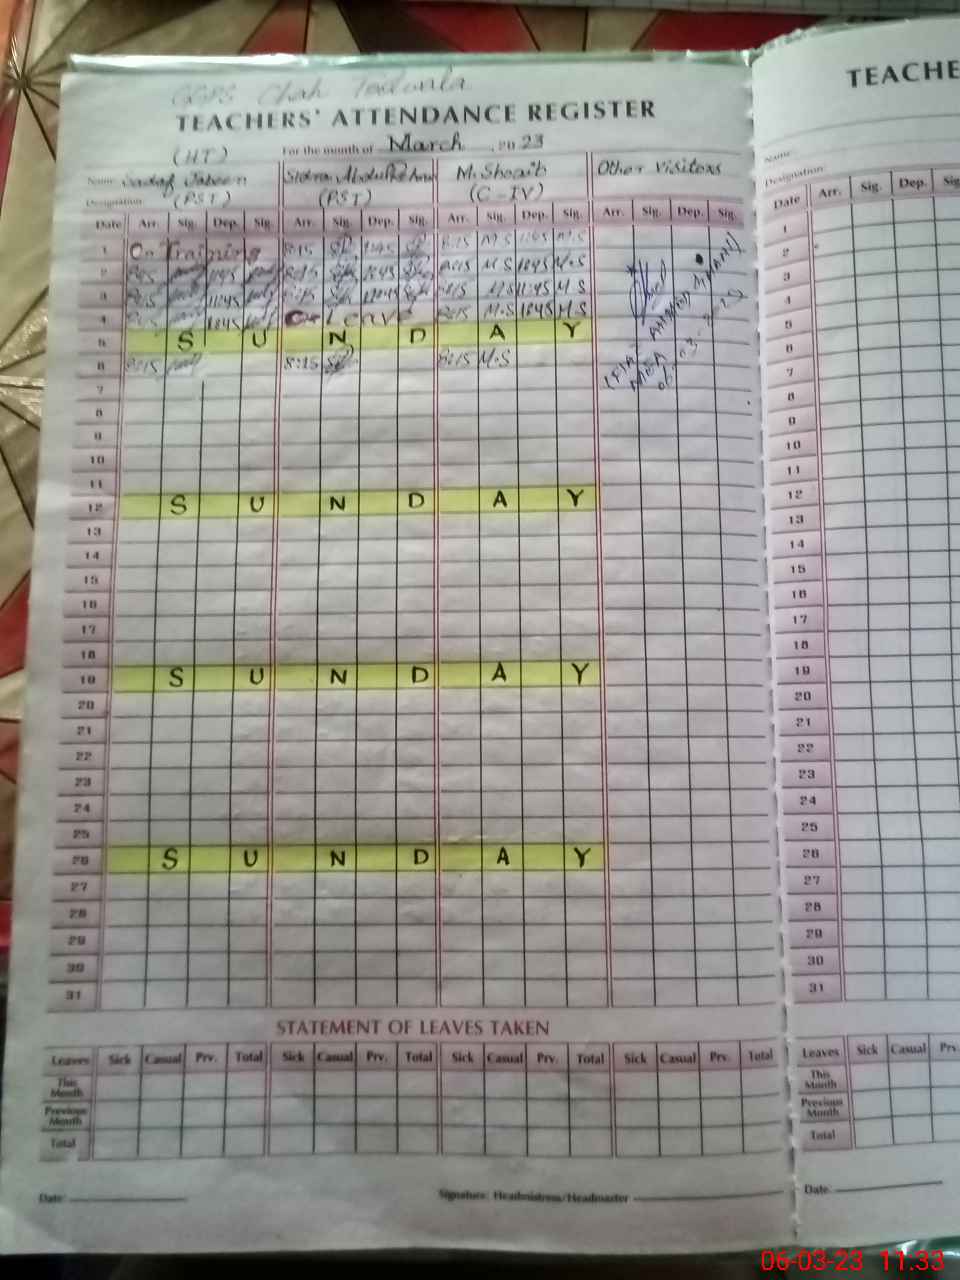 GGPS Chah
TEACHERS' ATTENDANCE REGISTER
For the month of March , 20 23
(HT)
Name Sadaf Jabeen Sidra M. Shoaib Other Visitors
Designation (PST) (PST) (C-IV)
Date Arr. Sig. Dep. Sig. Arr. Sig. Dep. Sig. Arr. Sig. Dep. Sig. Arr. Sig. Dep. Sig.
1 On Training 8:15 8:15 M.S M.S
2 8:15 1245 8:15 1245 8:15 M.S 1245 M.S
3 8:15 8:15 8:15 M.S M.S
4 1245 On Leave 8:15 M.S 1245 M.S
5 S U N D A Y
6 8:15 8:15 8:15 M.S
7
8
9
10
11
12 S U N D A Y
13
14
15
16
17
18
19 S U N D A Y
20
21
22
23
24
25
26 S U N D A Y
27
28
29
30
31
MEA
STATEMENT OF LEAVES TAKEN
Leaves Sick Casual Prv. Total Sick Casual Prv. Total Sick Casual Prv. Total Sick Casual Prv. Total
This Month
Previous Month
Total
Date: Signature: Headmistress/Headmaster
TEACHE
Name
Designation:
Date Arr. Sig. Dep. Sig
1
2
3
4
5
6
7
8
9
10
11
12
13
14
15
16
17
18
19
20
21
22
23
24
25
26
27
28
29
30
31
Leaves Sick Casual Prv.
This Month
Previous Month
Total
Date:
06-03-23 11.33